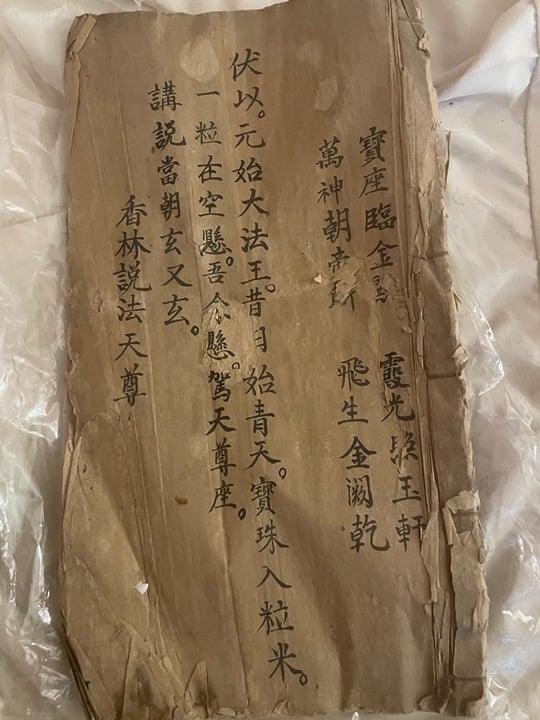 寶座臨金殿　霞光照玉軒
萬神朝帝所　飛生金闕乾
伏以。元始大法王。昔日始青天。寶珠入粒米。
一粒在空懸。吾今懸。駕天尊座。
講説當朝玄又玄。
香林説法天尊